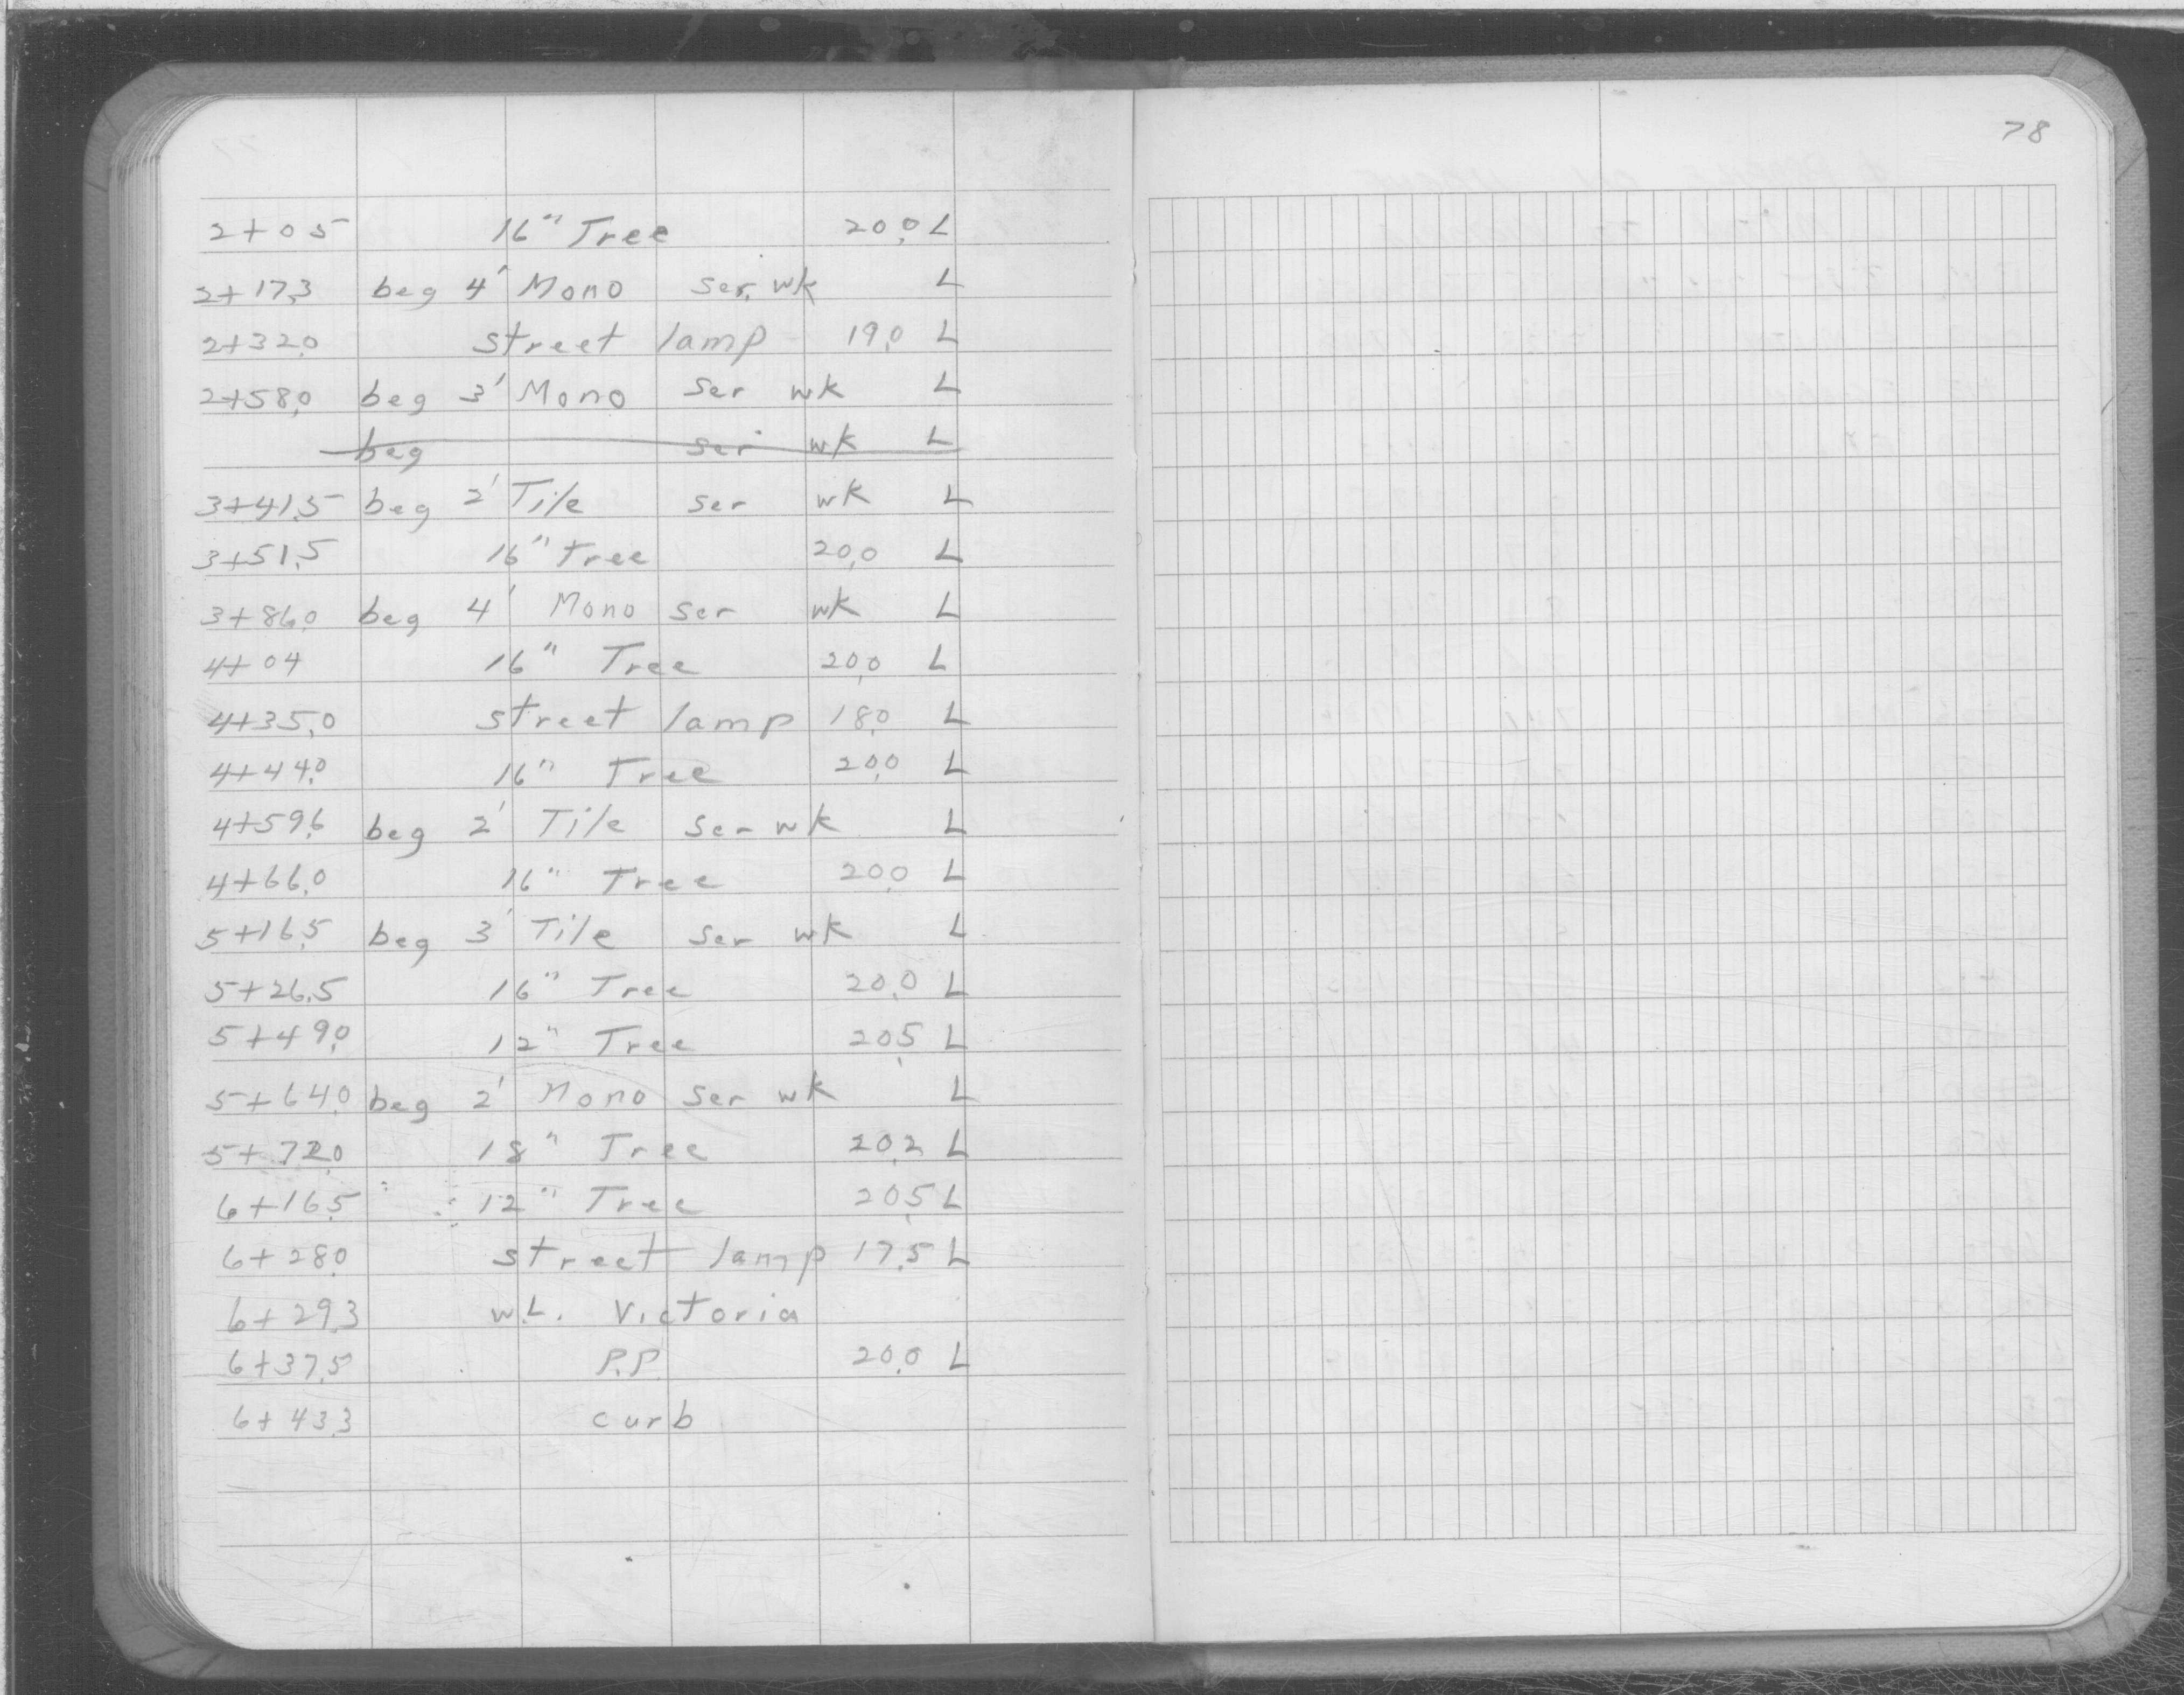 78
2+05 16" Tree 20.0 L
2+17.3 beg 4' Mono ser. wk L
2+32.0 street lamp 19.0 L
2+58.0 beg 3' Mono ser wk L
beg ser wk L
3+41.5 beg 2' Tile ser wk L
3+51.5 16" Tree 20.0 L
3+86.0 beg 4' Mono ser wk L
4+04 16" Tree 20.0 L
4+35.0 street lamp 18.0 L
4+44.0 16" Tree 20.0 L
4+59.6 beg 2' Tile ser wk L
4+66.0 16" Tree 20.0 L
5+16.5 beg 3' Tile ser wk L
5+26.5 16" Tree 20.0 L
5+49.0 12" Tree 20.5 L
5+64.0 beg 2' Mono ser wk L
5+72.0 18" Tree 20.2 L
6+16.5 12" Tree 20.5 L
6+28.0 street lamp 17.5 L
6+29.3 w.L. Victoria
6+37.5 P.P. 20.0 L
6+43.3 curb